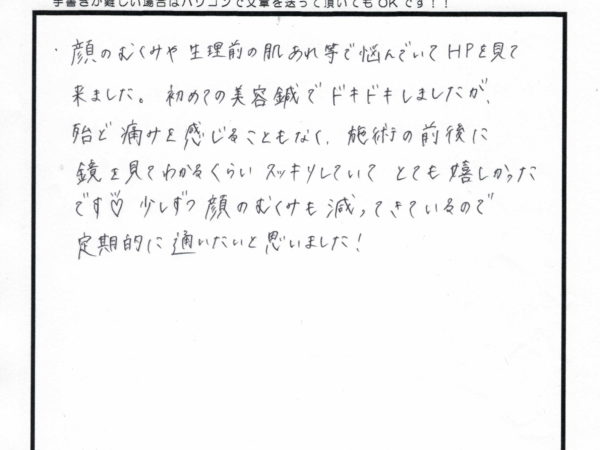 手書きが難しい場合はパソコンで文章を送って頂いてもOKです！！
・顔のむくみや生理前の肌あれ等で悩んでいてHPを見て
来ました。初めての美容鍼でドキドキしましたが、
殆ど痛みを感じることもなく、施術の前後に
鏡を見てわかるくらいスッキリしていてとても嬉しかった
です♡少しずつ顔のむくみも減ってきているので
定期的に通いたいと思いました！